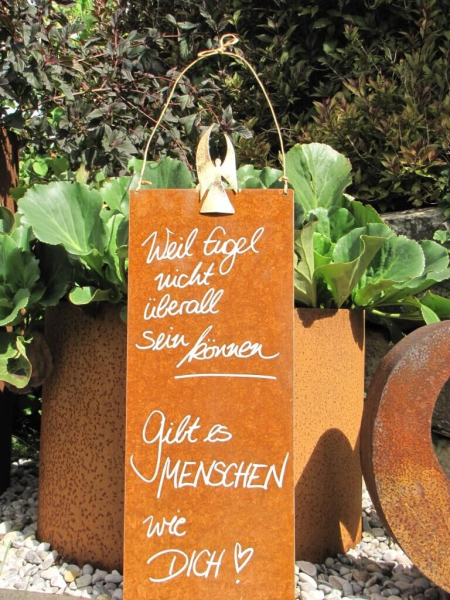 Weil Engel
nicht
überall
sein können
Gibt es
MENSCHEN
wie
DICH ♡!